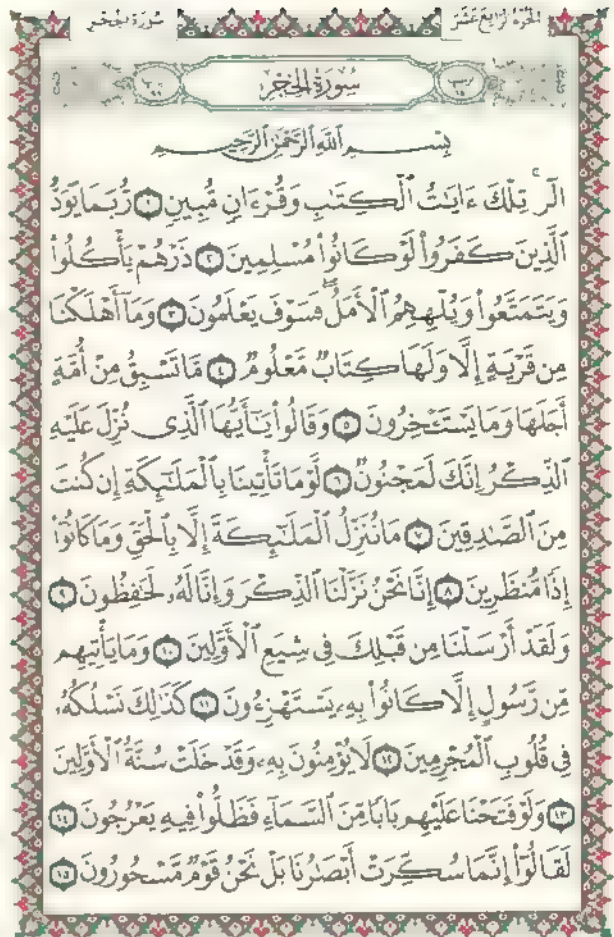 الجزء الرابع عشر سورة الحجر
سُورَةُ الحِجْرِ
بِسْمِ ٱللَّهِ ٱلرَّحْمَٰنِ ٱلرَّحِيمِ
الٓر ۚ تِلْكَ ءَايَٰتُ ٱلْكِتَٰبِ وَقُرْءَانٍ مُّبِينٍ ١ رُّبَمَا يَوَدُّ
ٱلَّذِينَ كَفَرُوا۟ لَوْ كَانُوا۟ مُسْلِمِينَ ٢ ذَرْهُمْ يَأْكُلُوا۟
وَيَتَمَتَّعُوا۟ وَيُلْهِهِمُ ٱلْأَمَلُ ۖ فَسَوْفَ يَعْلَمُونَ ٣ وَمَآ أَهْلَكْنَا
مِن قَرْيَةٍ إِلَّا وَلَهَا كِتَابٌ مَّعْلُومٌ ٤ مَّا تَسْبِقُ مِنْ أُمَّةٍ
أَجَلَهَا وَمَا يَسْتَـْٔخِرُونَ ٥ وَقَالُوا۟ يَٰٓأَيُّهَا ٱلَّذِى نُزِّلَ عَلَيْهِ
ٱلذِّكْرُ إِنَّكَ لَمَجْنُونٌ ٦ لَّوْ مَا تَأْتِينَا بِٱلْمَلَٰٓئِكَةِ إِن كُنتَ
مِنَ ٱلصَّٰدِقِينَ ٧ مَا نُنَزِّلُ ٱلْمَلَٰٓئِكَةَ إِلَّا بِٱلْحَقِّ وَمَا كَانُوٓا۟
إِذًا مُّنظَرِينَ ٨ إِنَّا نَحْنُ نَزَّلْنَا ٱلذِّكْرَ وَإِنَّا لَهُۥ لَحَٰفِظُونَ ٩
وَلَقَدْ أَرْسَلْنَا مِن قَبْلِكَ فِى شِيَعِ ٱلْأَوَّلِينَ ١٠ وَمَا يَأْتِيهِم
مِّن رَّسُولٍ إِلَّا كَانُوا۟ بِهِۦ يَسْتَهْزِءُونَ ١١ كَذَٰلِكَ نَسْلُكُهُۥ
فِى قُلُوبِ ٱلْمُجْرِمِينَ ١٢ لَا يُؤْمِنُونَ بِهِۦ ۖ وَقَدْ خَلَتْ سُنَّةُ ٱلْأَوَّلِينَ
١٣ وَلَوْ فَتَحْنَا عَلَيْهِم بَابًا مِّنَ ٱلسَّمَآءِ فَظَلُّوا۟ فِيهِ يَعْرُجُونَ ١٤
لَقَالُوٓا۟ إِنَّمَا سُكِّرَتْ أَبْصَٰرُنَا بَلْ نَحْنُ قَوْمٌ مَّسْحُورُونَ ١٥